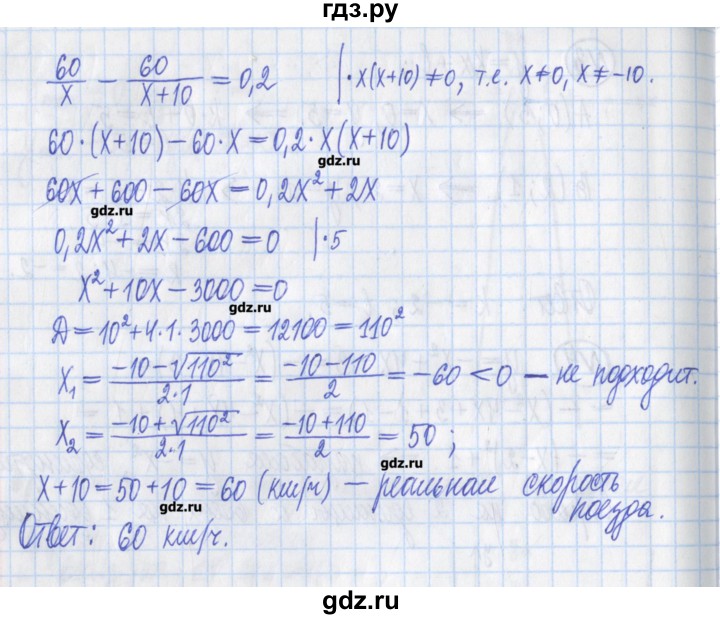 гдз.ру
60/x − 60/(x+10) = 0,2 | · x(x+10) ≠ 0, т.е. x ≠ 0, x ≠ −10.
60·(x+10) − 60·x = 0,2·x(x+10)
gdz.ru
60x + 600 − 60x = 0,2x² + 2x
gdz.ru
0,2x² + 2x − 600 = 0 | · 5
x² + 10x − 3000 = 0
gdz.ru
Д = 10² + 4·1·3000 = 12100 = 110²
x₁ = (−10 − √110²)/(2·1) = (−10 − 110)/2 = −60 < 0 – не подходит.
x₂ = (−10 + √110²)/(2·1) = (−10 + 110)/2 = 50;
gdz.ru
x + 10 = 50 + 10 = 60 (км/ч) – реальная скорость
поезда.
Ответ: 60 км/ч.
gdz.ru
gdz.ru